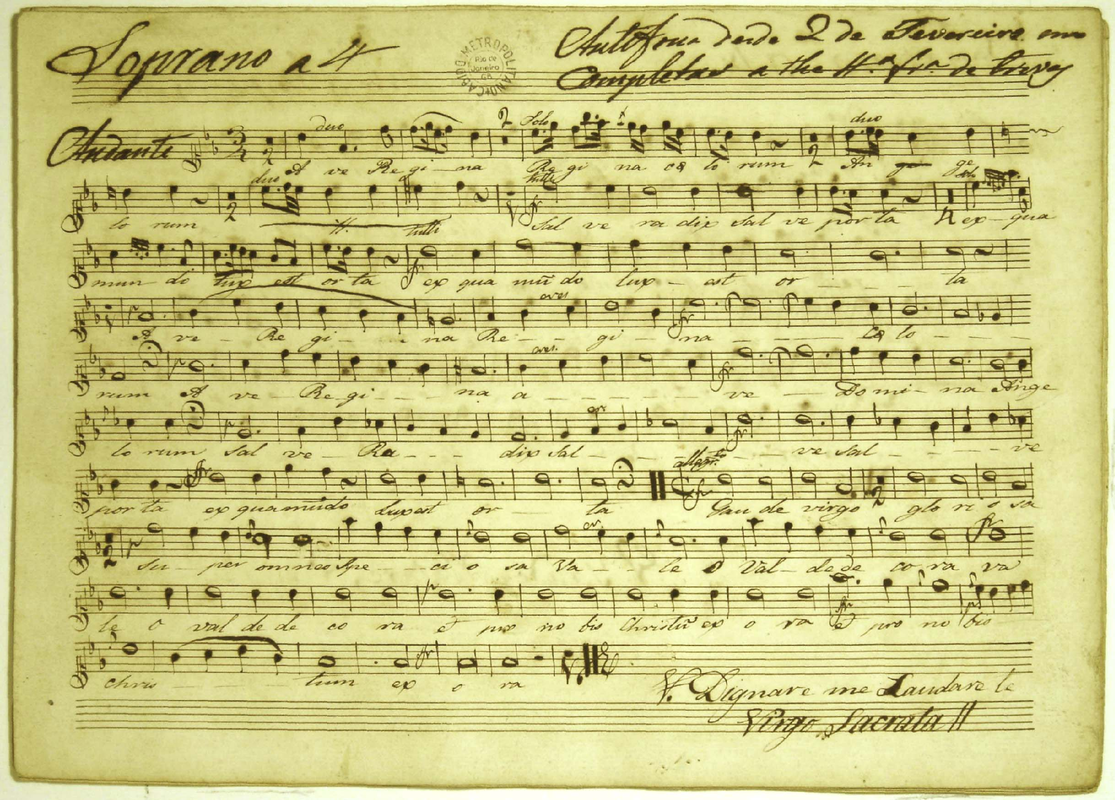 Soprano a 4
CABIDO METROPOLITANO Rio de Janeiro GB
desde 2 de Fevereiro em
Completas a the 4ª fª de trevas
Andante
duo Solo duo
A ve Re gi - na Re gi na cæ lo rum An ge
duo tutti Solo
lo rum tutti Sal ve ra dix sal ve por ta ex - qua
mun di lux est or ta ex qua mũ do lux - est or - - ta
cres
A ve - Re gi - - na Re - - gi - na - - - cæ lo - - -
cres
rum A ve - Re gi - - na a - - - - ve - - Do mi - na Ange
cres
lo rum Sal ve - Ra - - - dix sal - - - - - ve sal - - - ve
por ta ex qua mũdo Lux est or - ta Gau de virgo glo ri o sa
Su - per omnes spe - - ci o sa Va - - le O Val - de de co ra va
le o val de de co ra et pro no bis Christũ ex o ra et pro no bis
chris - - - tum ex o ra
V. Dignare me Laudare te
Virgo Sacrata